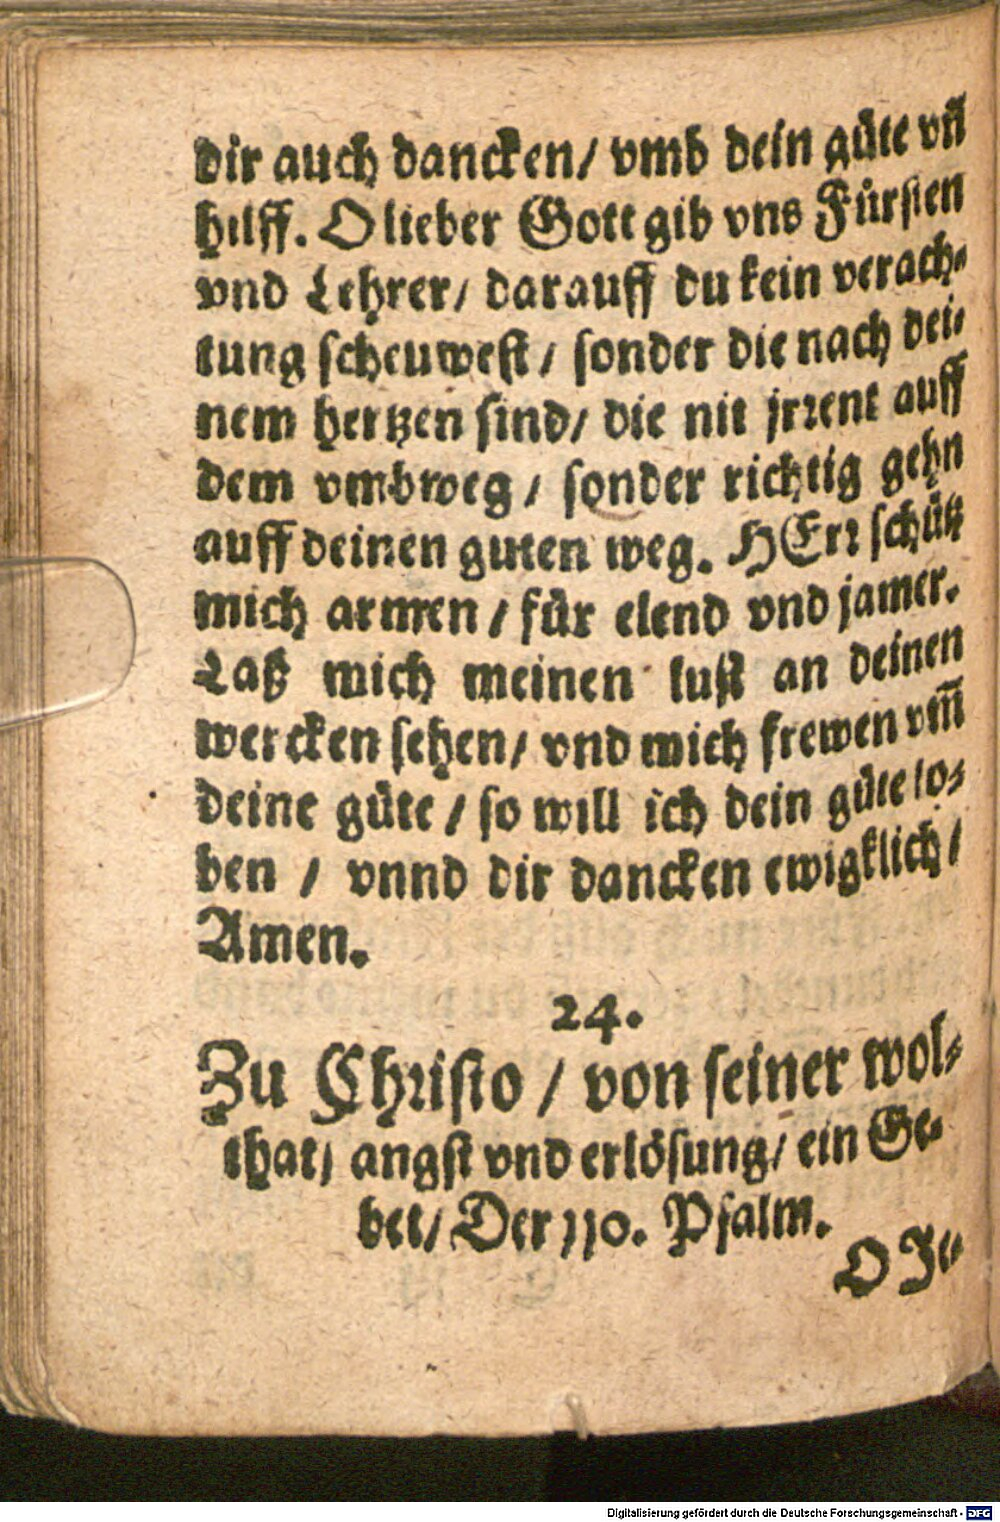 dir auch dancken/ vmb dein güte vñ
hilff. O lieber Gott gib vns Fürsten
vnd Lehrer/ darauff du kein verach-
tung scheuwest/ sonder die nach dei-
nem hertzen sind/ die nit jrrent auff
dem vmbweg/ sonder richtig gehn
auff deinen guten weg. HErr schütz
mich armen/ für elend vnd jamer.
Laß mich meinen lust an deinen
wercken sehen/ vnd mich frewen vm̄
deine güte/ so will ich dein güte lo-
ben/ vnnd dir dancken ewigklich/
Amen.
24.
Zu Christo/ von seiner wol-
that/ angst vnd erlösung/ ein Ge-
bet/ Der 110. Psalm.
O Je-
Digitalisierung gefördert durch die Deutsche Forschungsgemeinschaft - DFG